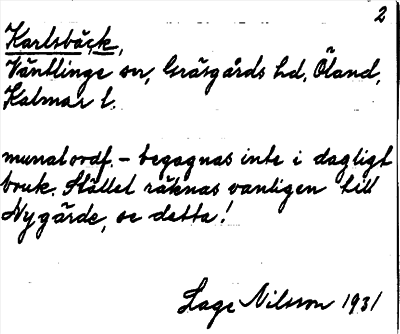 2
Karlsbäck,
Ventlinge sn, Gräsgårds hd, Öland,
Kalmar l.
munal ordf. - begagnas inte i dagligt
bruk. Stället räknas vanligen till
Nygärde, se detta!
Lage Nilsson 1931